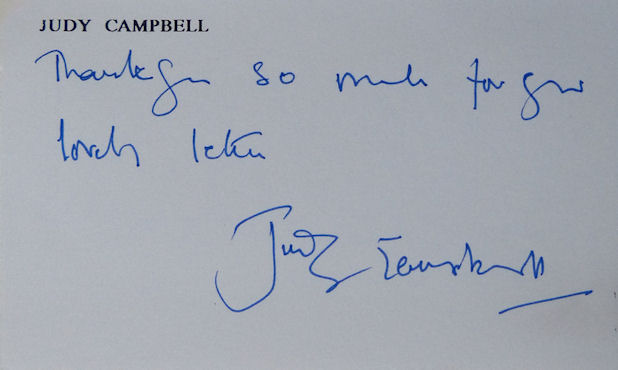 JUDY CAMPBELL
Thank you so much for your
lovely letter
Judy Campbell